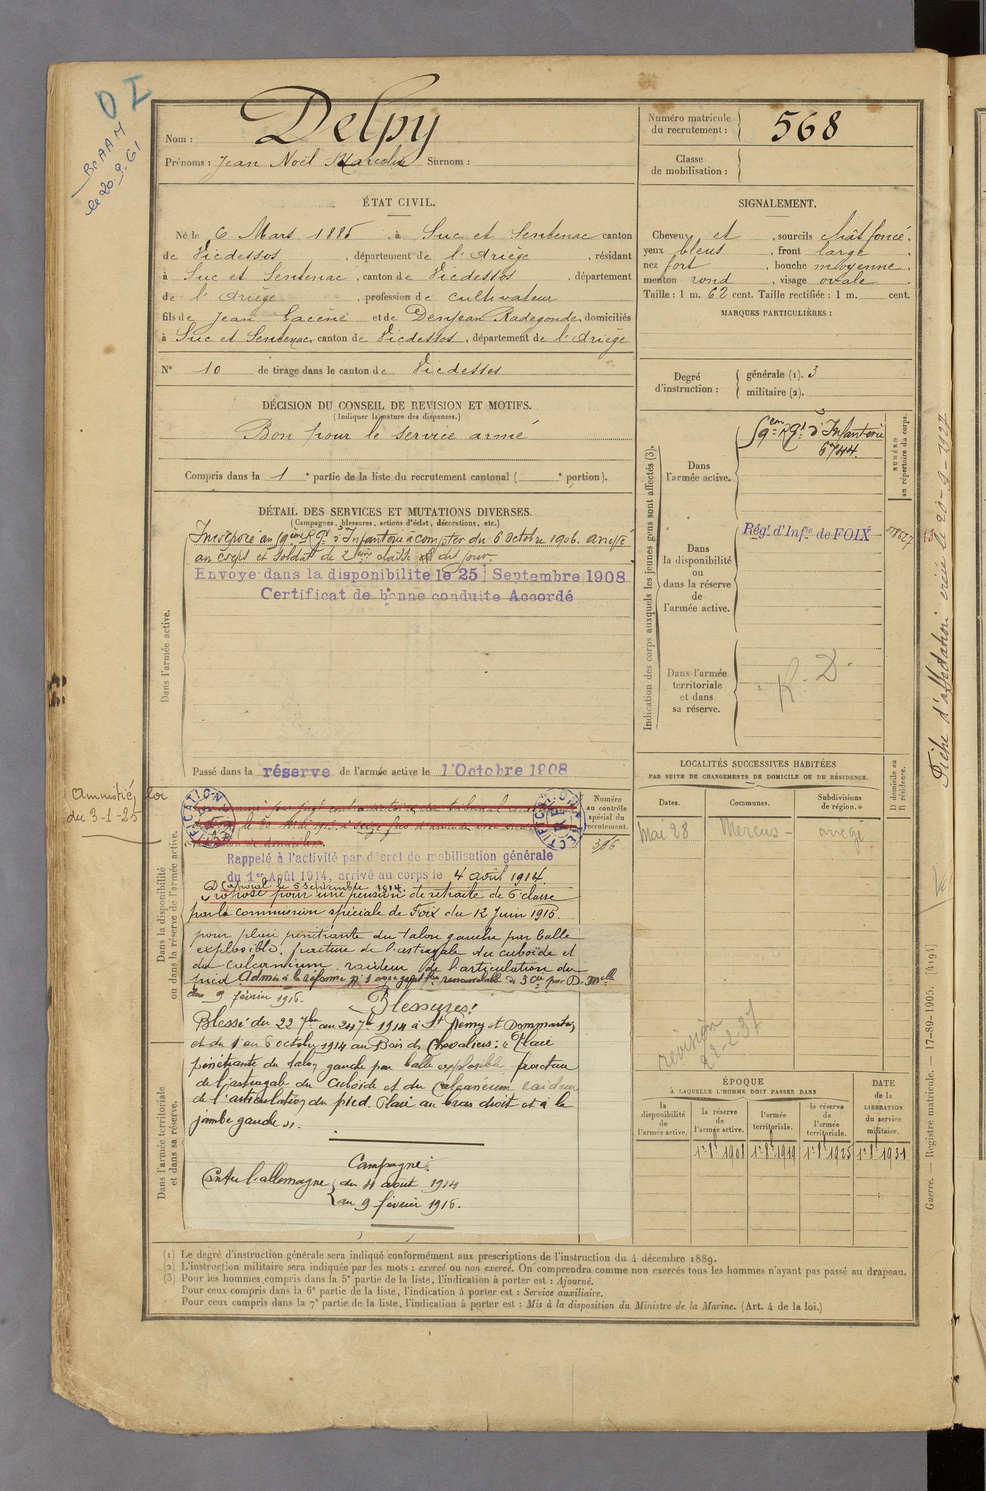 O I
Br AAM
le 20.9.61
Nom : Delpy
Prénoms : Jean Noël Marcelin Surnom :
Numéro matricule du recrutement : 568
Classe de mobilisation :
ÉTAT CIVIL.
Né le 6 Mars 1885, à Suc et Sentenac canton
de Vicdessos, département de l'Ariège, résidant
à Suc et Sentenac, canton de Vicdessos, département
de l'Ariège, profession de cultivateur
fils de Jean Lacène et de Denjean Radegonde, domiciliés
à Suc et Sentenac, canton de Vicdessos, département de l'Ariège
N° 10 de tirage dans le canton de Vicdessos
SIGNALEMENT.
Cheveux et, sourcils chât foncé.
yeux bleus, front large.
nez fort, bouche moyenne.
menton rond, visage ovale.
Taille : 1 m. 62 cent. Taille rectifiée : 1 m. cent.
MARQUES PARTICULIÈRES :
Degré d'instruction : générale (1). 3
militaire (2).
DÉCISION DU CONSEIL DE REVISION ET MOTIFS.
(Indiquer la nature des dispenses.)
Bon pour le service armé
Compris dans la 1e partie de la liste du recrutement cantonal ( e portion).
DÉTAIL DES SERVICES ET MUTATIONS DIVERSES.
(Campagnes, blessures, actions d'éclat, décorations, etc.)
Dans l'armée active.
Incorporé au 59ème Rgt d'Infanterie à compter du 6 octobre 1906. arrivé
au corps et soldat de 2ème classe le dit jour.
Envoyé dans la disponibilité le 25 Septembre 1908
Certificat de bonne conduite Accordé
Passé dans la réserve de l'armée active le 1er Octobre 1908
Indication des corps auxquels les jeunes gens sont affectés (3).
NUMÉRO au répertoire du corps.
Dans l'armée active.
59ème Rgt d'Infanterie
6744.
Dans la disponibilité ou dans la réserve de l'armée active.
Régt d'Infie de FOIX
Dans l'armée territoriale et dans sa réserve.
R. D.
Fiche d'affectation créée le 20-9-1927
LOCALITÉS SUCCESSIVES HABITÉES
PAR SUITE DE CHANGEMENTS DE DOMICILE OU DE RÉSIDENCE.
Dates. Communes. Subdivisions de région. D domicile ou R résidence.
Mai 28 Mercus - Ariège
revision
22-2-37
Amnistié, loi
du 3-1-25
Dans la disponibilité ou dans la réserve de l'armée active.
Numéro au contrôle spécial du recrutement.
RECTIFICATION
RECTIFICATION
Rappelé à l'activité par décret de mobilisation générale
du 1er Août 1914, arrivé au corps le 4 août 1914
Caporal le 5 septembre 1914.
Proposé pour une pension de retraite de 5e classe
par la commission spéciale de Foix du 12 Juin 1915.
pour plaie pénétrante du talon gauche par balle
explosible. fracture de l'astragale du cuboïde et
du calcanéum. raideur de l'articulation du
pied. Admis à la réforme n° 1 avec gratification renouvelable
du 9 février 1916.
Blessures:
Blessé du 22 7bre au 24 7bre 1914 à St Rémy et Dommartin
et du 1 au 6 octobre 1914 au Bois des Chevaliers : " Plaie
pénétrante du talon gauche par balle explosible fracture
de l'astragale du Cuboïde et du Calcanéum raideur
de l'articulation du pied. Plaie au bras droit et à la
jambe gauche ".
Dans l'armée territoriale et dans sa réserve.
Campagne:
Contre l'allemagne du 4 août 1914
au 9 février 1916.
ÉPOQUE
À LAQUELLE L'HOMME DOIT PASSER DANS
la disponibilité de l'armée active. la réserve de l'armée active. l'armée territoriale. la réserve de l'armée territoriale.
DATE de la LIBÉRATION du service militaire.
1er 8bre 1908 1er 8bre 1919 1er 8bre 1925 1er 8bre 1931
Guerre. — Registre matricule. — 17-89-1905. [4194]
(1) Le degré d'instruction générale sera indiqué conformément aux prescriptions de l'instruction du 4 décembre 1889.
(2) L'instruction militaire sera indiquée par les mots : exercé ou non exercé. On comprendra comme non exercés tous les hommes n'ayant pas passé au drapeau.
(3) Pour les hommes compris dans la 5e partie de la liste, l'indication à porter est : Ajourné.
Pour ceux compris dans la 6e partie de la liste, l'indication à porter est : Service auxiliaire.
Pour ceux compris dans la 7e partie de la liste, l'indication à porter est : Mis à la disposition du Ministre de la Marine. (Art. 4 de la loi.)